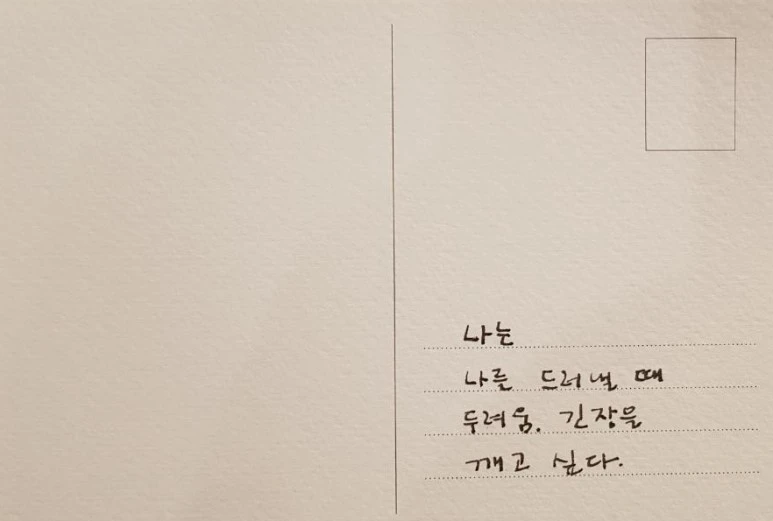 나는
나를 드러낼 때
두려움. 긴장을
깨고 싶다.